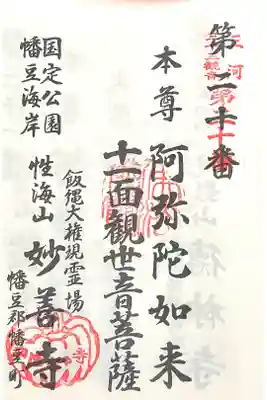 第二十番
三河
本尊 阿弥陀如来
十一面観世音菩薩
飯縄大権現霊場
性海山 妙善寺
幡豆郡幡豆町
国定公園
幡豆海岸